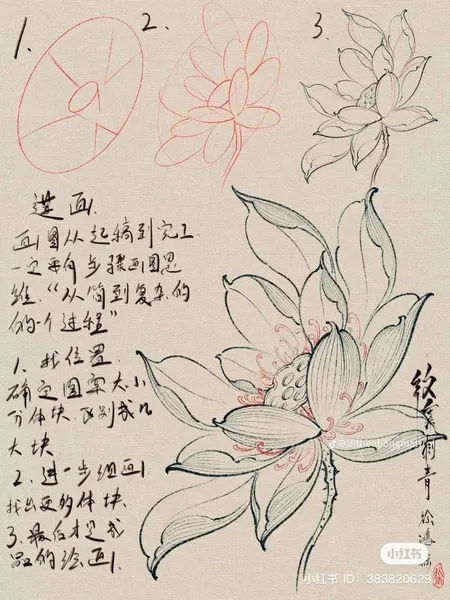 1.
2.
3.
画图从起稿到完工
一定要有步骤画图思
维.“从简到复杂的
的一个过程”
1. 找位置.
确定图案大小
分体块.区别成几
大块
2. 进一步细画.
找出更多的体块.
3. 最后才是成
品的绘画.
刺青
小红书
小红书 ID: 383820629